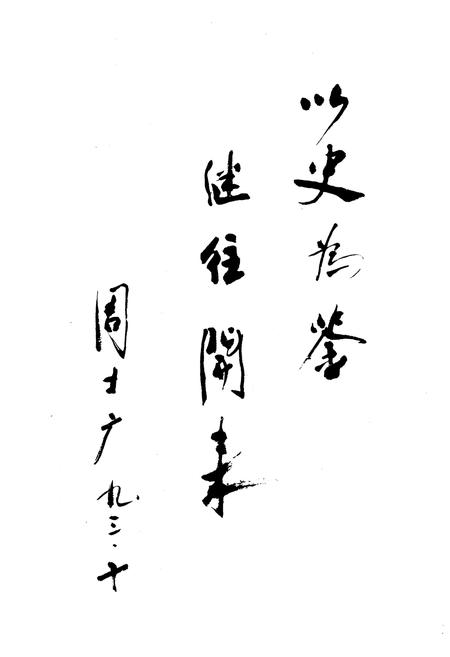 以史為鉴
继往開来
周士广 九三·十